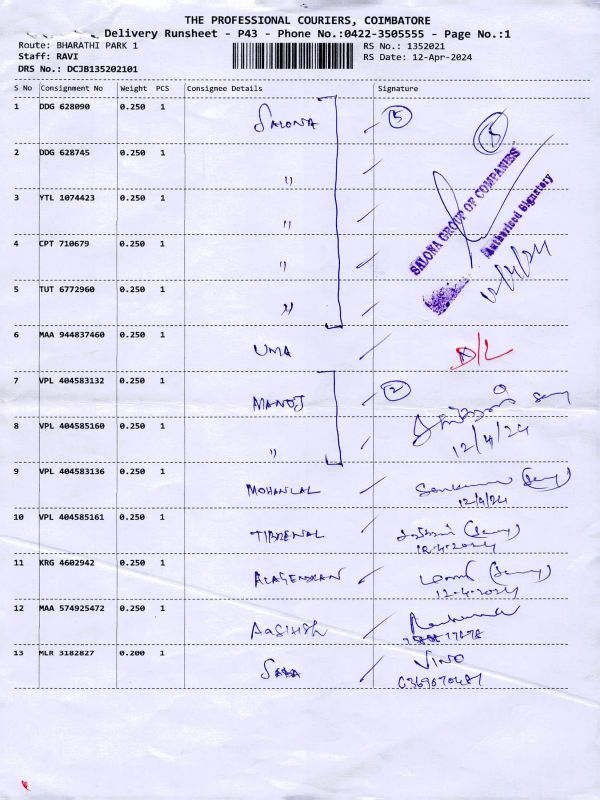 THE PROFESSIONAL COURIERS, COIMBATORE
Delivery Runsheet - P43 - Phone No.:0422-3505555 - Page No.:1
Route: BHARATHI PARK 1 RS No.: 1352021
Staff: RAVI RS Date: 12-Apr-2024
DRS No.: DCJB135202101
S No Consignment No Weight PCS Consignee Details Signature
1 DDG 628090 0.250 1 SALONA 5 5
2 DDG 628745 0.250 1 "
3 YTL 1074423 0.250 1 "
4 CPT 710679 0.250 1 "
5 TUT 6772960 0.250 1 "
SALONA GROUP OF COMPANIES
Authorised Signatory
12/4/24
6 MAA 944837460 0.250 1 UMA D/L
7 VPL 404583132 0.250 1 MANOJ 2
8 VPL 404585160 0.250 1 " 12/4/24
9 VPL 404583136 0.250 1 MOHANLAL
12/4/24
10 VPL 404585161 0.250 1
12.4.2024
11 KRG 4602942 0.250 1 ALAGENDRAN
12-4-2024
12 MAA 574925472 0.250 1 AASHISH
13 MLR 3182827 0.200 1 VINO